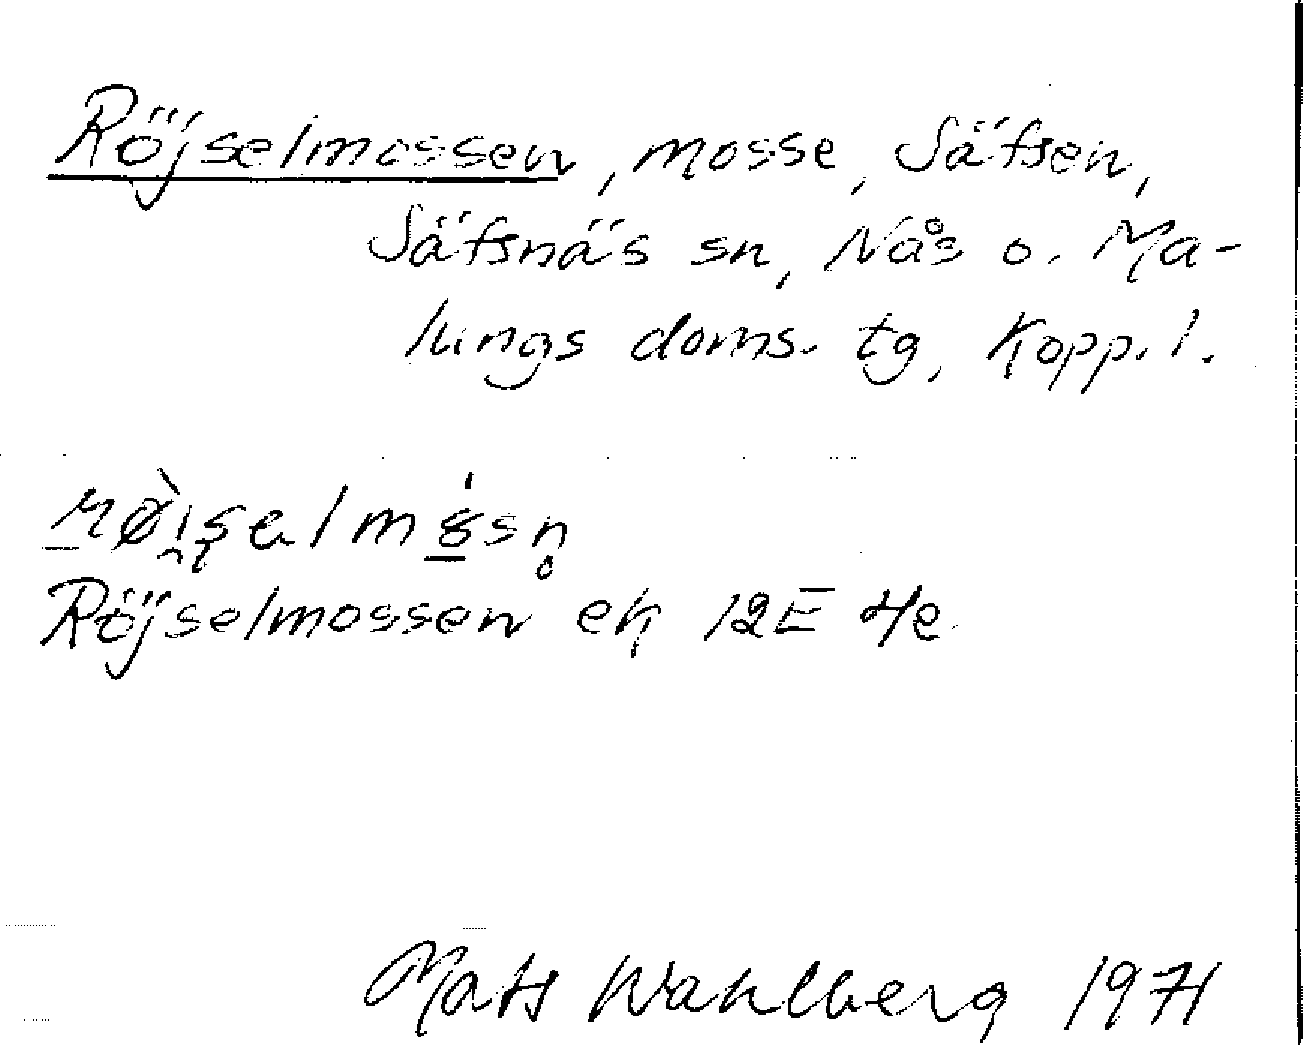 Röjselmossen, mosse, Säfsen,
Säfsnäs sn, Nås o. Ma-
lungs doms. tg, Kopp. l.
Röjselmossen ek 12E 4e
Mats Wahlberg 1971